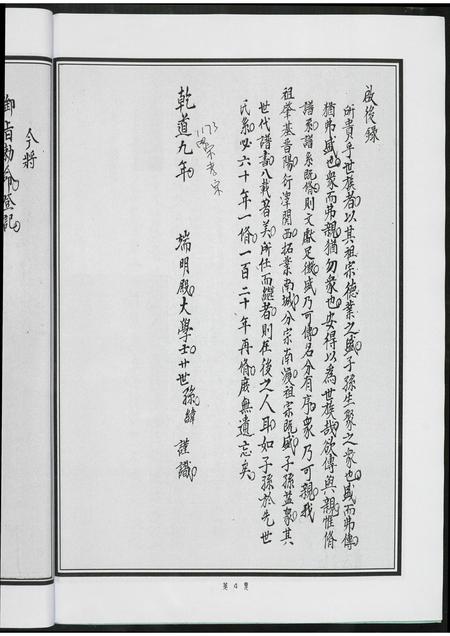 啟後錄
所貴乎世族者以其祖宗德業之盛子孫生聚之衆也盛而弗傳
猶弗盛也衆而弗親猶勿衆也安得以為世族哉欲傳與親惟脩
譜系譜系既脩則文獻足徵盛乃可傳名分有序衆乃可親我
祖肇基晋陽行漳閩西拓業南城分宗南漫祖宗既盛子孫益衆其
世代譜書八載著美所任而繼者則在後之人耳如子孫於先世
氏系必六十年一脩一百二十年再脩庶無遺忘矣
1173
宗孝宗
乾道九年
端明殿大學士廿世孫緯謹識
今將
御旨勅命登記
第4隻